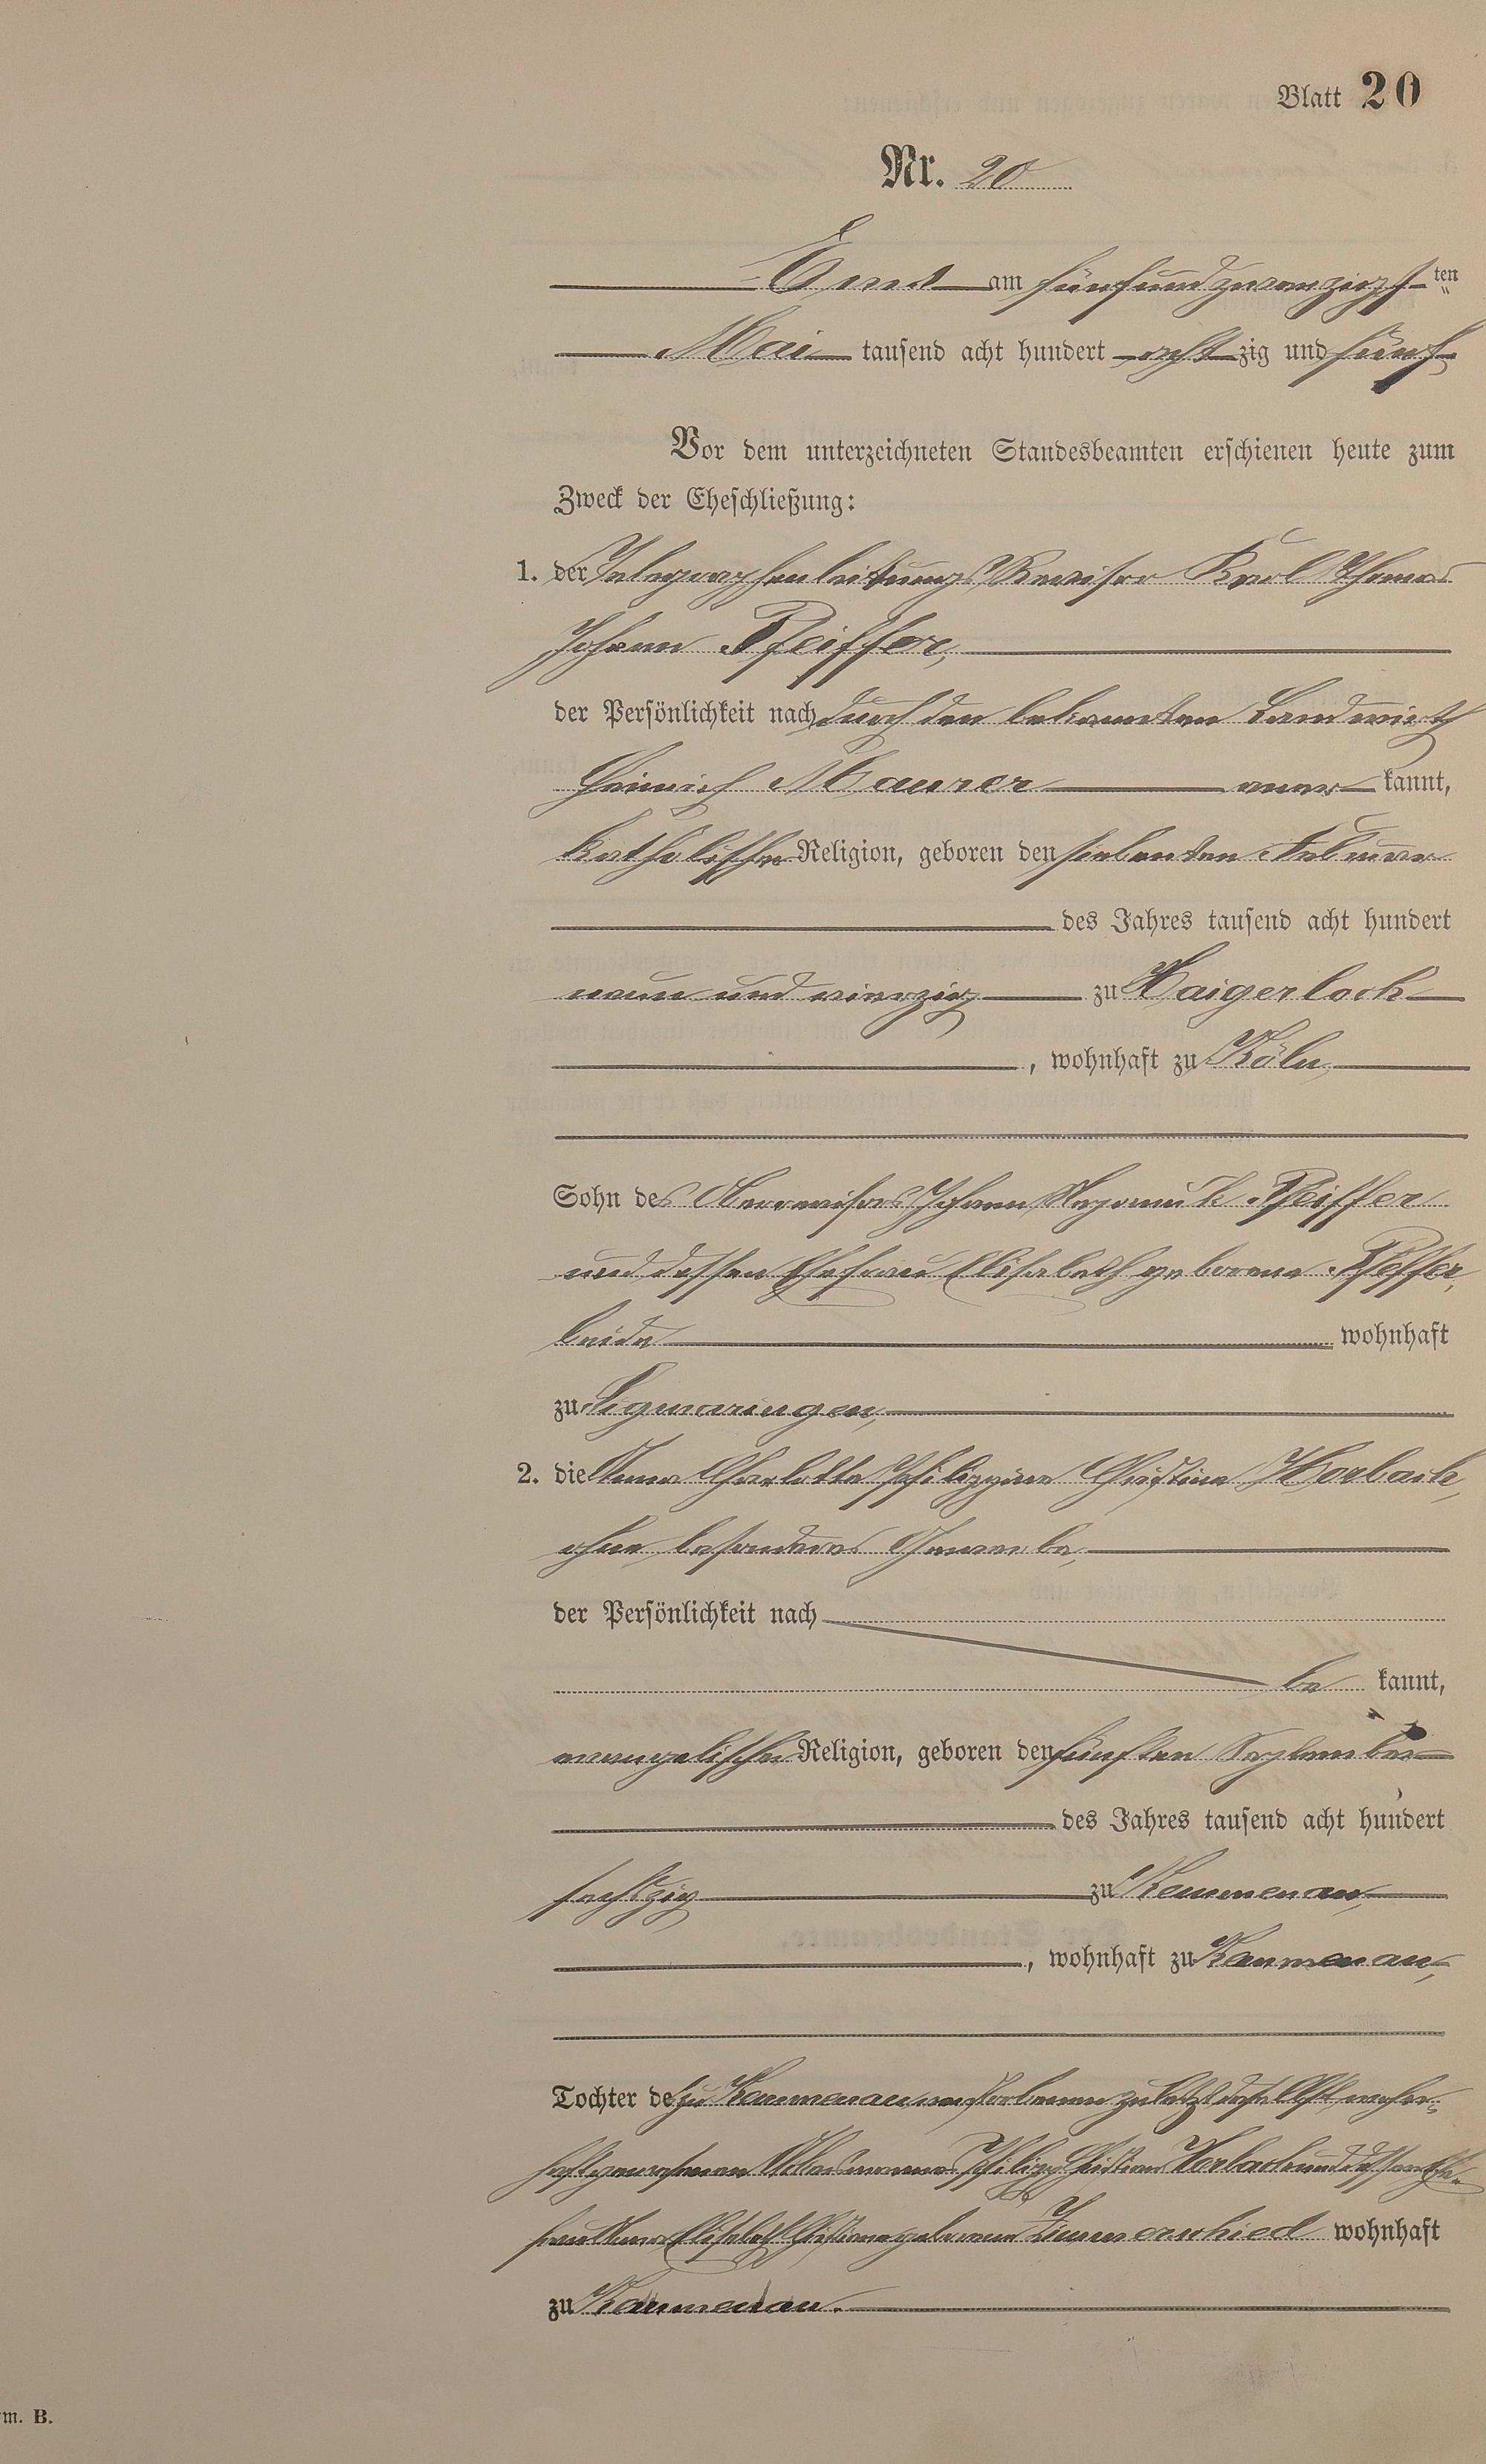 Blatt 20
Nr. 20
Ems am fünfundzwanzigst ten
Mai tausend acht hundert acht zig und fünf
Vor dem unterzeichneten Standesbeamten erschienen heute zum
Zweck der Eheschließung:
1. der Telegraphenleitungs Revisor Karl Thomas
Johann Pfeiffer,
der Persönlichkeit nach durch den bekannten Landwirth
Heinrich Maurer aner kannt,
katholischer Religion, geboren den siebenten Februar
des Jahres tausend acht hundert
neun und vierzig zu Haigerloch
, wohnhaft zu Köln,
Sohn des Oberrevisors Johann Nepomuk Pfeiffer
und dessen Ehefrau Elisabeth geborene Pfeffer,
beide wohnhaft
zu Sigmaringen,
2. die Anna Charlotte Philippine Christine Horbach,
ohne besonderes Gewerbe,
der Persönlichkeit nach
be kannt,
evangelischer Religion, geboren den fünften September
des Jahres tausend acht hundert
sechszig zu Kemmenau,
, wohnhaft zu Kemmenau,
Tochter des zu Kemmenau verstorbenen zuletzt daselbst wohn-
haft gewesenen Philipp Christian Horbach und dessen Ehe-
frau Elisabeth Christiane geborene Zimmerschied wohnhaft
zu Kemmenau.
m. B.